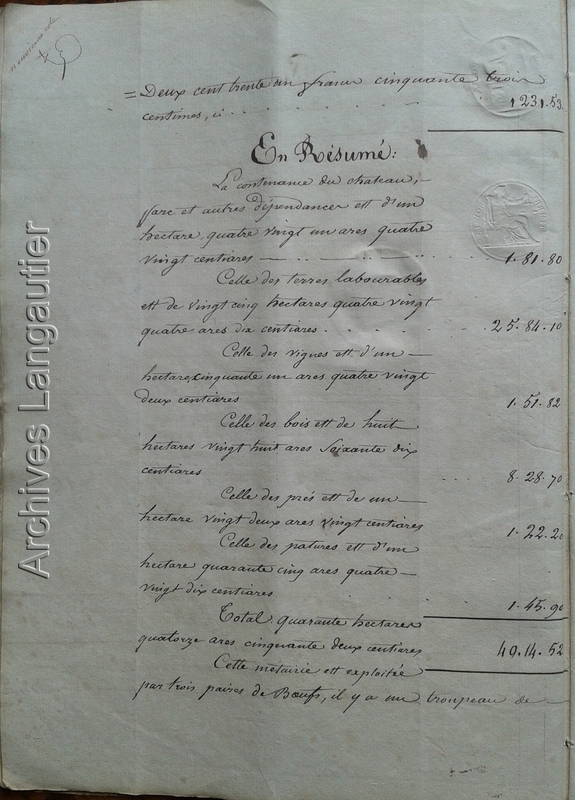 neuvième role
= Deux cent trente un francs cinquante trois
centimes, ci . . . . . . 1231.53
En Résumé:
La contenance du chateau,
parc et autres dépendances est d'un
hectare quatre vingt un ares quatre
vingt centiares 1.81.80
Celle des terres labourables
est de vingt cinq hectares quatre vingt
quatre ares dix centiares . . . . 25.84.10
Celle des vignes est d'un
hectare cinquante un ares quatre vingt
deux centiares 1.51.82
Celle des bois est de huit
hectares vingt huit ares soixante dix
centiares 8.28.70
Celle des prés est de un
hectare vingt deux ares vingt centiares 1.22.20
Celle des patures est d'un
hectare quarante cinq ares quatre
vingt dix centiares 1.45.90
Total quarante hectares
quatorze ares cinquante deux centiares 40.14.52
Cette metairie est exploitée
par trois paires de Bœufs, il y a un troupeau de
Archives Langautier